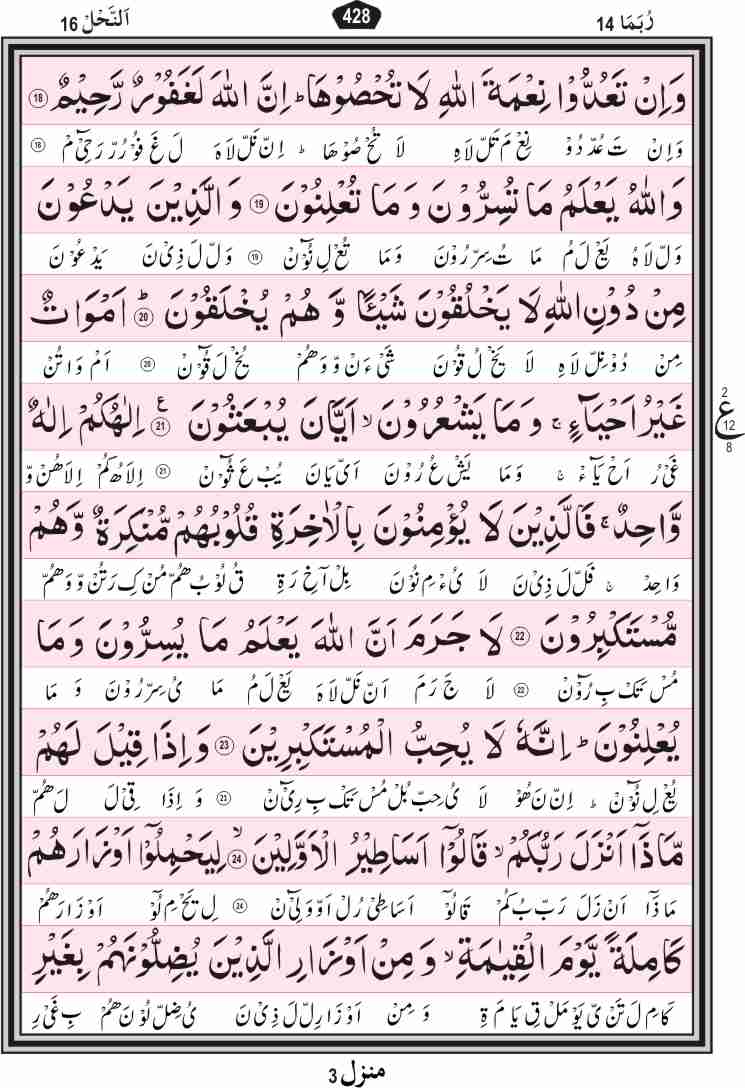 رُبَمَا 14 428 اَلنَّحْلُ 16
وَاِنْ تَعُدُّوْا نِعْمَةَ اللّٰهِ لَا تُحْصُوْهَا ؕ اِنَّ اللّٰهَ لَغَفُوْرٌ رَّحِيْمٌ 18
وَاِنْ تَ عُدّ دُوْ نِعْ مَ تَلّ لَاهِ لَا تُحْ صُوْهَا ؕ اِنّ نَلّ لَاهَ لَ غَ فُوْ رُرّ رَحِیْٓ مْ 18
وَاللّٰهُ يَعْلَمُ مَا تُسِرُّوْنَ وَ مَا تُعْلِنُوْنَ 19 وَ الَّذِيْنَ يَدْعُوْنَ
وَلّ لَاهُ یَعْ لَ مُ مَا تُ سِرّ رُوْنَ وَمَا تُعْ لِ نُوْٓنْ 19 وَلّ لَ ذِیْ نَ یَدْ عُوْنَ
مِنْ دُوْنِ اللّٰهِ لَا يَخْلُقُوْنَ شَيْئًا وَّ هُمْ يُخْلَقُوْنَ ؕ 20 اَمْوَاتٌ
مِنْ دُوْنِلّ لَاهِ لَا یَخْ لُ قُوْنَ شَیْ ءَنْ وّ وَهُمْ یُخْ لَ قُوْٓنْ 20 اَمْ وَاتُنْ
غَيْرُ اَحْيَآءٍ ۚ وَ مَا يَشْعُرُوْنَ ۙ اَيَّانَ يُبْعَثُوْنَ 21 ع اِلٰهُكُمْ اِلٰهٌ
غَیْ رُ اَحْ یَآءْ ۚ وَمَا یَشْ عُ رُوْنَ اَیّ یَانَ یُبْ عَ ثُوْٓنْ 21 اِلَاهُ كُمْ اِلَاهُنْ وّ
2
ع
12
8
وَّاحِدٌ ۚ فَالَّذِيْنَ لَا يُؤْمِنُوْنَ بِالْاٰخِرَةِ قُلُوْبُهُمْ مُّنْكِرَةٌ وَّهُمْ
وَاحِدْ ۚ فَلّ لَ ذِیْ نَ لَا یُءْ مِ نُوْنَ بِلْ آخِ رَةِ قُ لُوْ بُ هُمّ مُنْ کِ رَتُنْ وّ وَهُمّ
مُّسْتَكْبِرُوْنَ 22 لَا جَرَمَ اَنَّ اللّٰهَ يَعْلَمُ مَا يُسِرُّوْنَ وَ مَا
مُسْ تَكْ بِ رُوْٓنْ 22 لَا جَ رَمَ اَنّ نَلّ لَاهَ یَعْ لَ مُ مَا یُ سِرّ رُوْنَ وَ مَا
يُعْلِنُوْنَ ؕ اِنَّهٗ لَا يُحِبُّ الْمُسْتَكْبِرِيْنَ 23 وَ اِذَا قِيْلَ لَهُمْ
یُعْ لِ نُوْٓنْ ؕ اِنّ نَ هُوْ لَا یُ حِبّ بُلْ مُسْ تَكْ بِ رِیْٓ نْ 23 وَ اِذَا قِیْ لَ لَ هُمّ
مَّاذَاۤ اَنْزَلَ رَبُّكُمْ ۙ قَالُوْۤا اَسَاطِيْرُ الْاَوَّلِيْنَ ۙ 24 لِيَحْمِلُوْۤا اَوْزَارَهُمْ
مَاذَآ اَنْ زَلَ رَبّ بُ كُمْ قَالُوْٓ اَسَاطِیْ رُلْ اَوّ وَلِیْٓ نْ 24 لِ یَحْ مِ لُوْٓ اَوْ زَارَهُمْ
كَامِلَةً يَّوْمَ الْقِيٰمَةِ ۙ وَ مِنْ اَوْزَارِ الَّذِيْنَ يُضِلُّوْنَهُمْ بِغَيْرِ
كَامِ لَ تَنْ یّ یَوْ مَلْ قِ یَا مَ ةِ وَ مِنْ اَوْ زَارِلّ لَ ذِیْ نَ یُ ضِلّ لُوْنَ هُمْ بِ غَیْ رِ
منزل 3